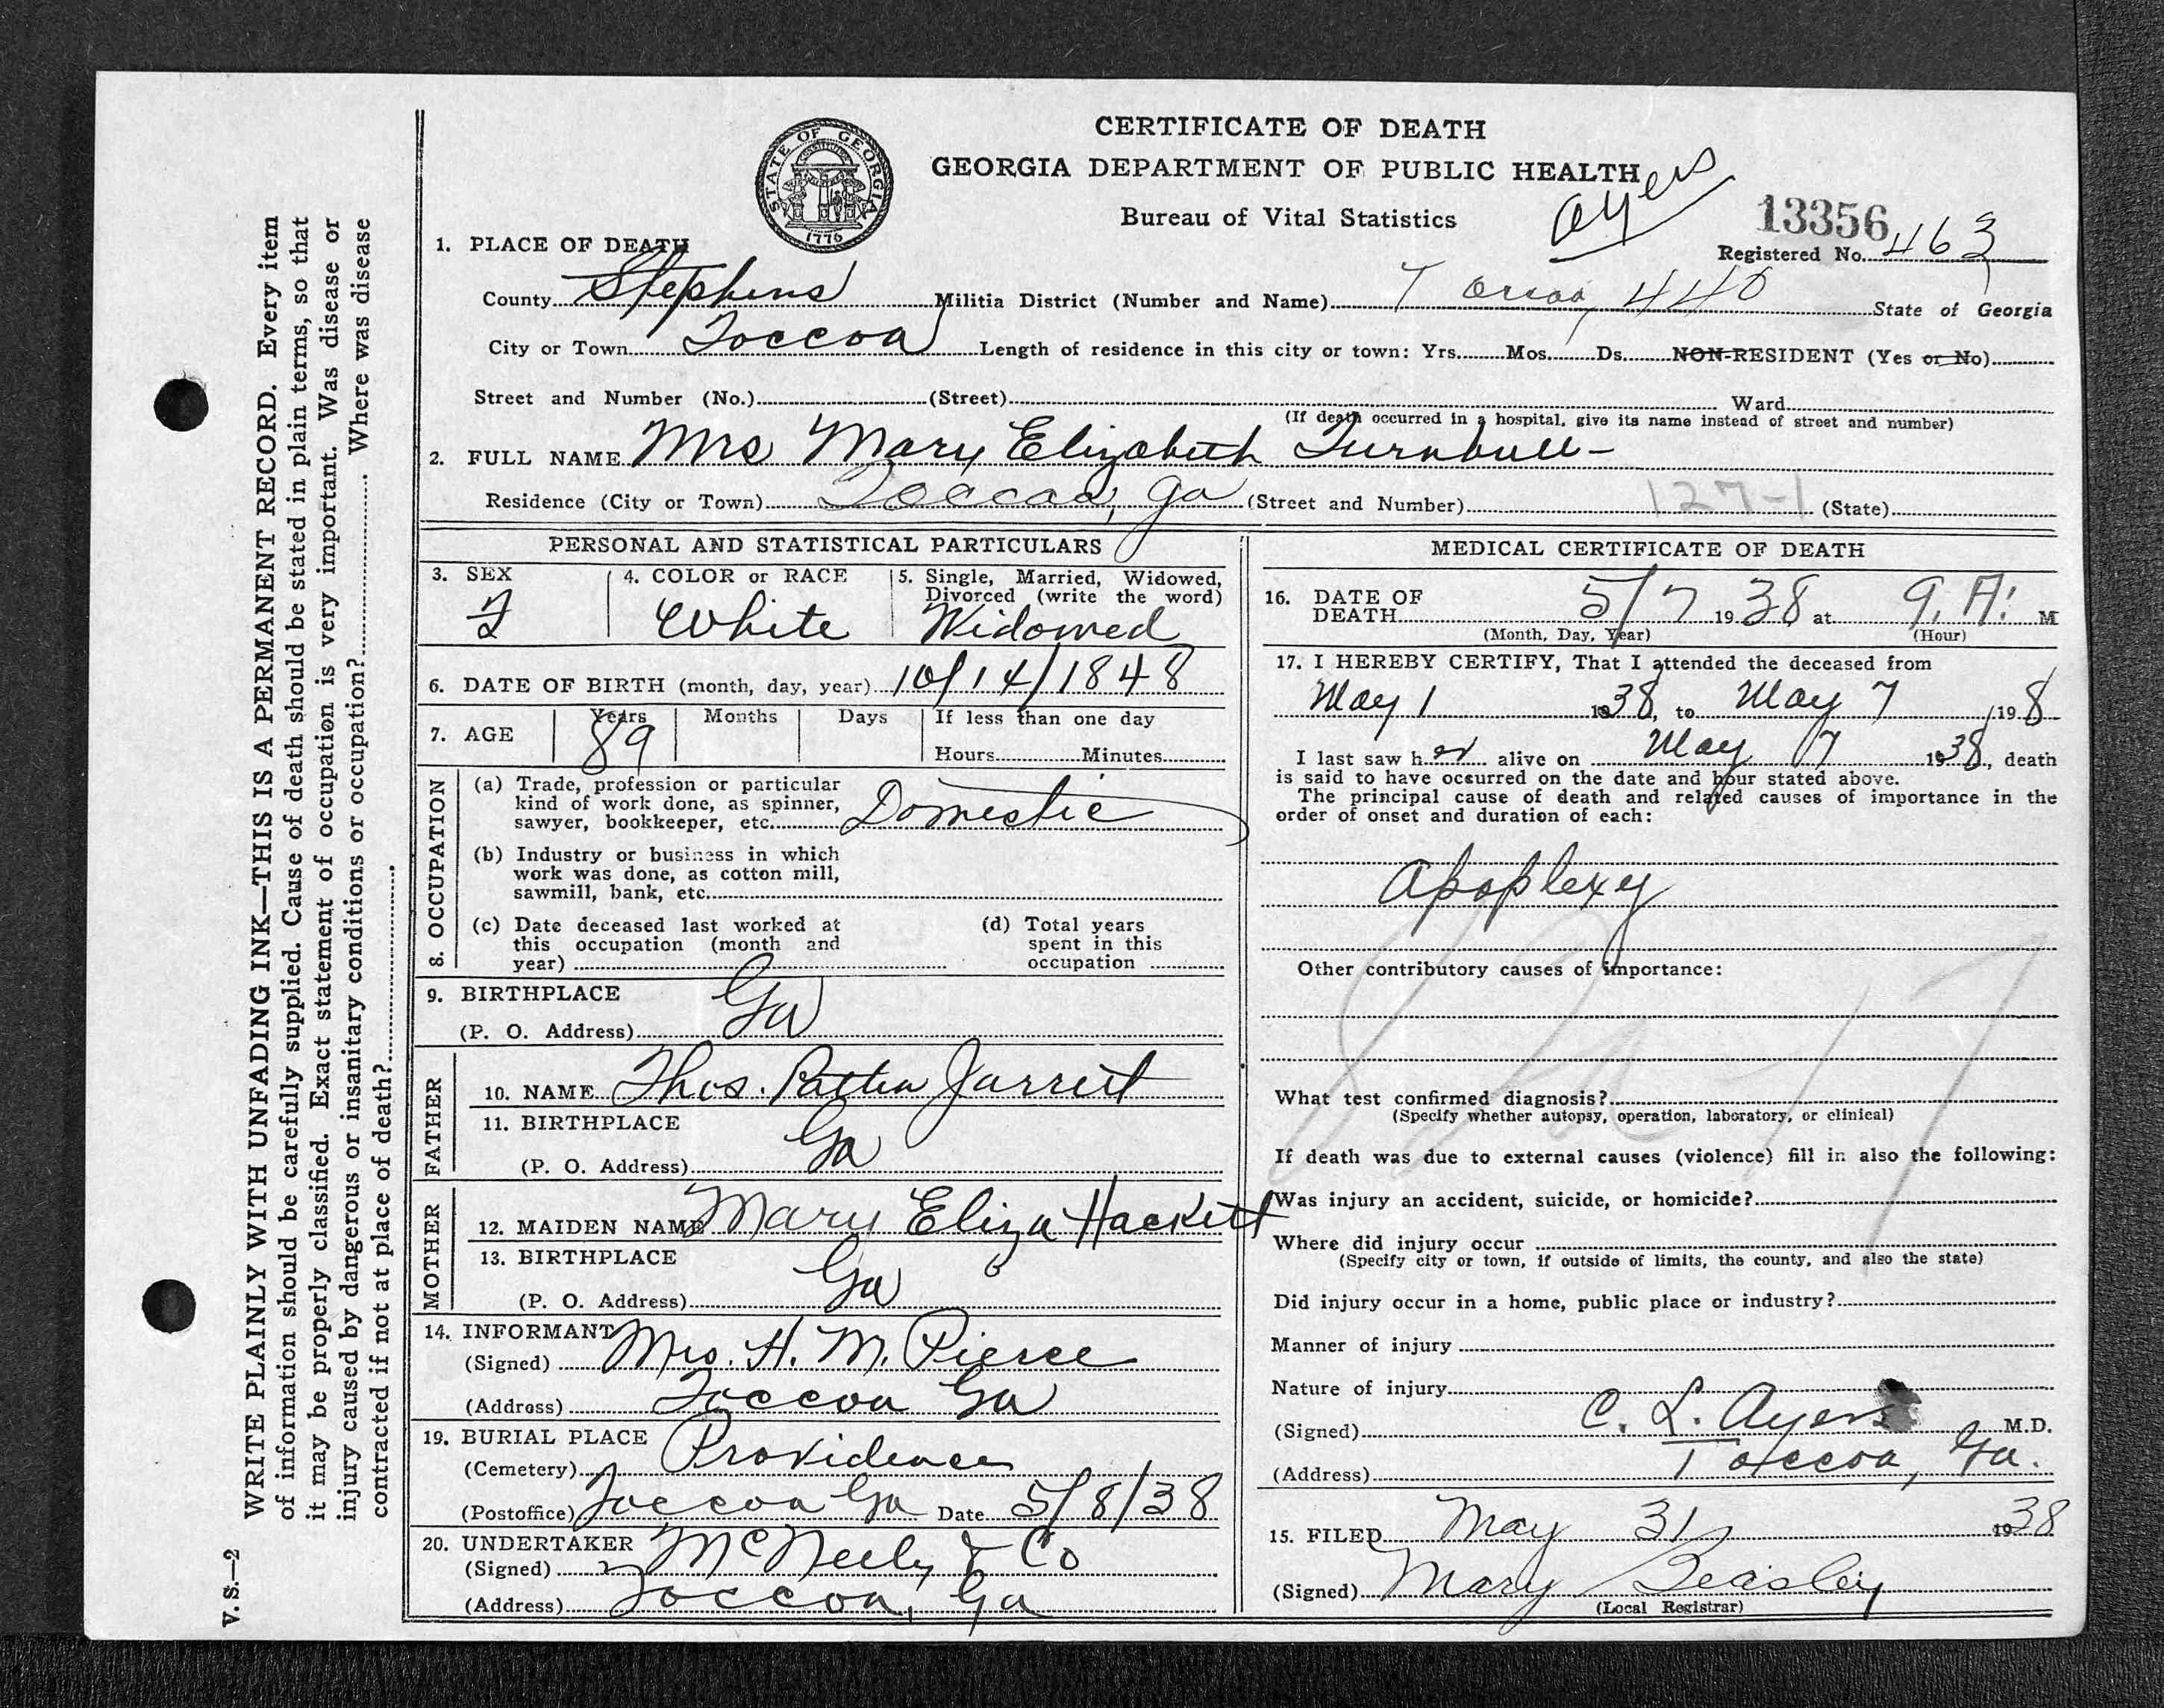 CERTIFICATE OF DEATH
GEORGIA DEPARTMENT OF PUBLIC HEALTH
Bureau of Vital Statistics
Ayers
STATE OF GEORGIA
CONSTITUTION
1776
13356
Registered No. 463
1. PLACE OF DEATH
County Stephens Militia District (Number and Name) Toccoa, 440 State of Georgia
City or Town Toccoa Length of residence in this city or town: Yrs. Mos. Ds. NON-RESIDENT (Yes or No)
Street and Number (No.) (Street) Ward
(If death occurred in a hospital, give its name instead of street and number)
2. FULL NAME Mrs Mary Elizabeth Turnbull-
Residence (City or Town) Toccoa, Ga (Street and Number) 127-1 (State)
PERSONAL AND STATISTICAL PARTICULARS
3. SEX F
4. COLOR or RACE White
5. Single, Married, Widowed, Divorced (write the word) Widowed
6. DATE OF BIRTH (month, day, year) 10/14/1848
7. AGE Years 89 Months Days If less than one day
Hours Minutes
8. OCCUPATION
(a) Trade, profession or particular
kind of work done, as spinner,
sawyer, bookkeeper, etc. Domestic
(b) Industry or business in which
work was done, as cotton mill,
sawmill, bank, etc.
(c) Date deceased last worked at
this occupation (month and
year)
(d) Total years
spent in this
occupation
9. BIRTHPLACE
(P. O. Address) Ga
FATHER
10. NAME Thos. Patten Jarrett
11. BIRTHPLACE
(P. O. Address) Ga
MOTHER
12. MAIDEN NAME Mary Eliza Hackett
13. BIRTHPLACE
(P. O. Address) Ga
14. INFORMANT
(Signed) Mrs. H. M. Pierce
(Address) Toccoa Ga
19. BURIAL PLACE
(Cemetery) Providence
(Postoffice) Toccoa Ga Date 5/8/38
20. UNDERTAKER
(Signed) McNeely & Co
(Address) Toccoa, Ga
MEDICAL CERTIFICATE OF DEATH
16. DATE OF
DEATH 5/7 1938 at 9. A. M
(Month, Day, Year) (Hour)
17. I HEREBY CERTIFY, That I attended the deceased from
May 1 1938, to May 7 1938
I last saw her alive on May 7 1938, death
is said to have occurred on the date and hour stated above.
The principal cause of death and related causes of importance in the
order of onset and duration of each:
Apoplexy
Other contributory causes of importance:
What test confirmed diagnosis?
(Specify whether autopsy, operation, laboratory, or clinical)
If death was due to external causes (violence) fill in also the following:
Was injury an accident, suicide, or homicide?
Where did injury occur
(Specify city or town, if outside of limits, the county, and also the state)
Did injury occur in a home, public place or industry?
Manner of injury
Nature of injury
(Signed) C. L. Ayers M.D.
(Address) Toccoa, Ga.
15. FILED May 31 1938
(Signed) Mary Beasley
(Local Registrar)
WRITE PLAINLY WITH UNFADING INK—THIS IS A PERMANENT RECORD. Every item
of information should be carefully supplied. Cause of death should be stated in plain terms, so that
it may be properly classified. Exact statement of occupation is very important. Was disease or
injury caused by dangerous or insanitary conditions or occupation? Where was disease
contracted if not at place of death?
V. S.—2